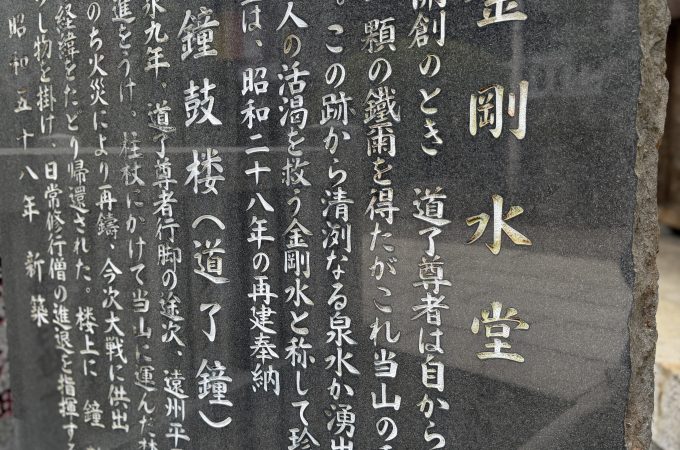 金剛水堂
開創のとき 道了尊者は自から
一顆の鐵爾を得たがこれ当山の
。この跡から清冽なる泉水か湧出
人の活渇を救う金剛水と称して珍
は、昭和二十八年の再建奉納
鐘鼓楼(道了鐘)
永九年、道了尊者行脚の途次、遠州平
進をうけ。柱杖にかけて当山に運んだ
のち火災により再鑄、今次大戦に供出
経緯をたどり帰還された。楼上に 鐘
し物を掛け、日常修行僧の進退を指揮する
昭和五十八年 新築